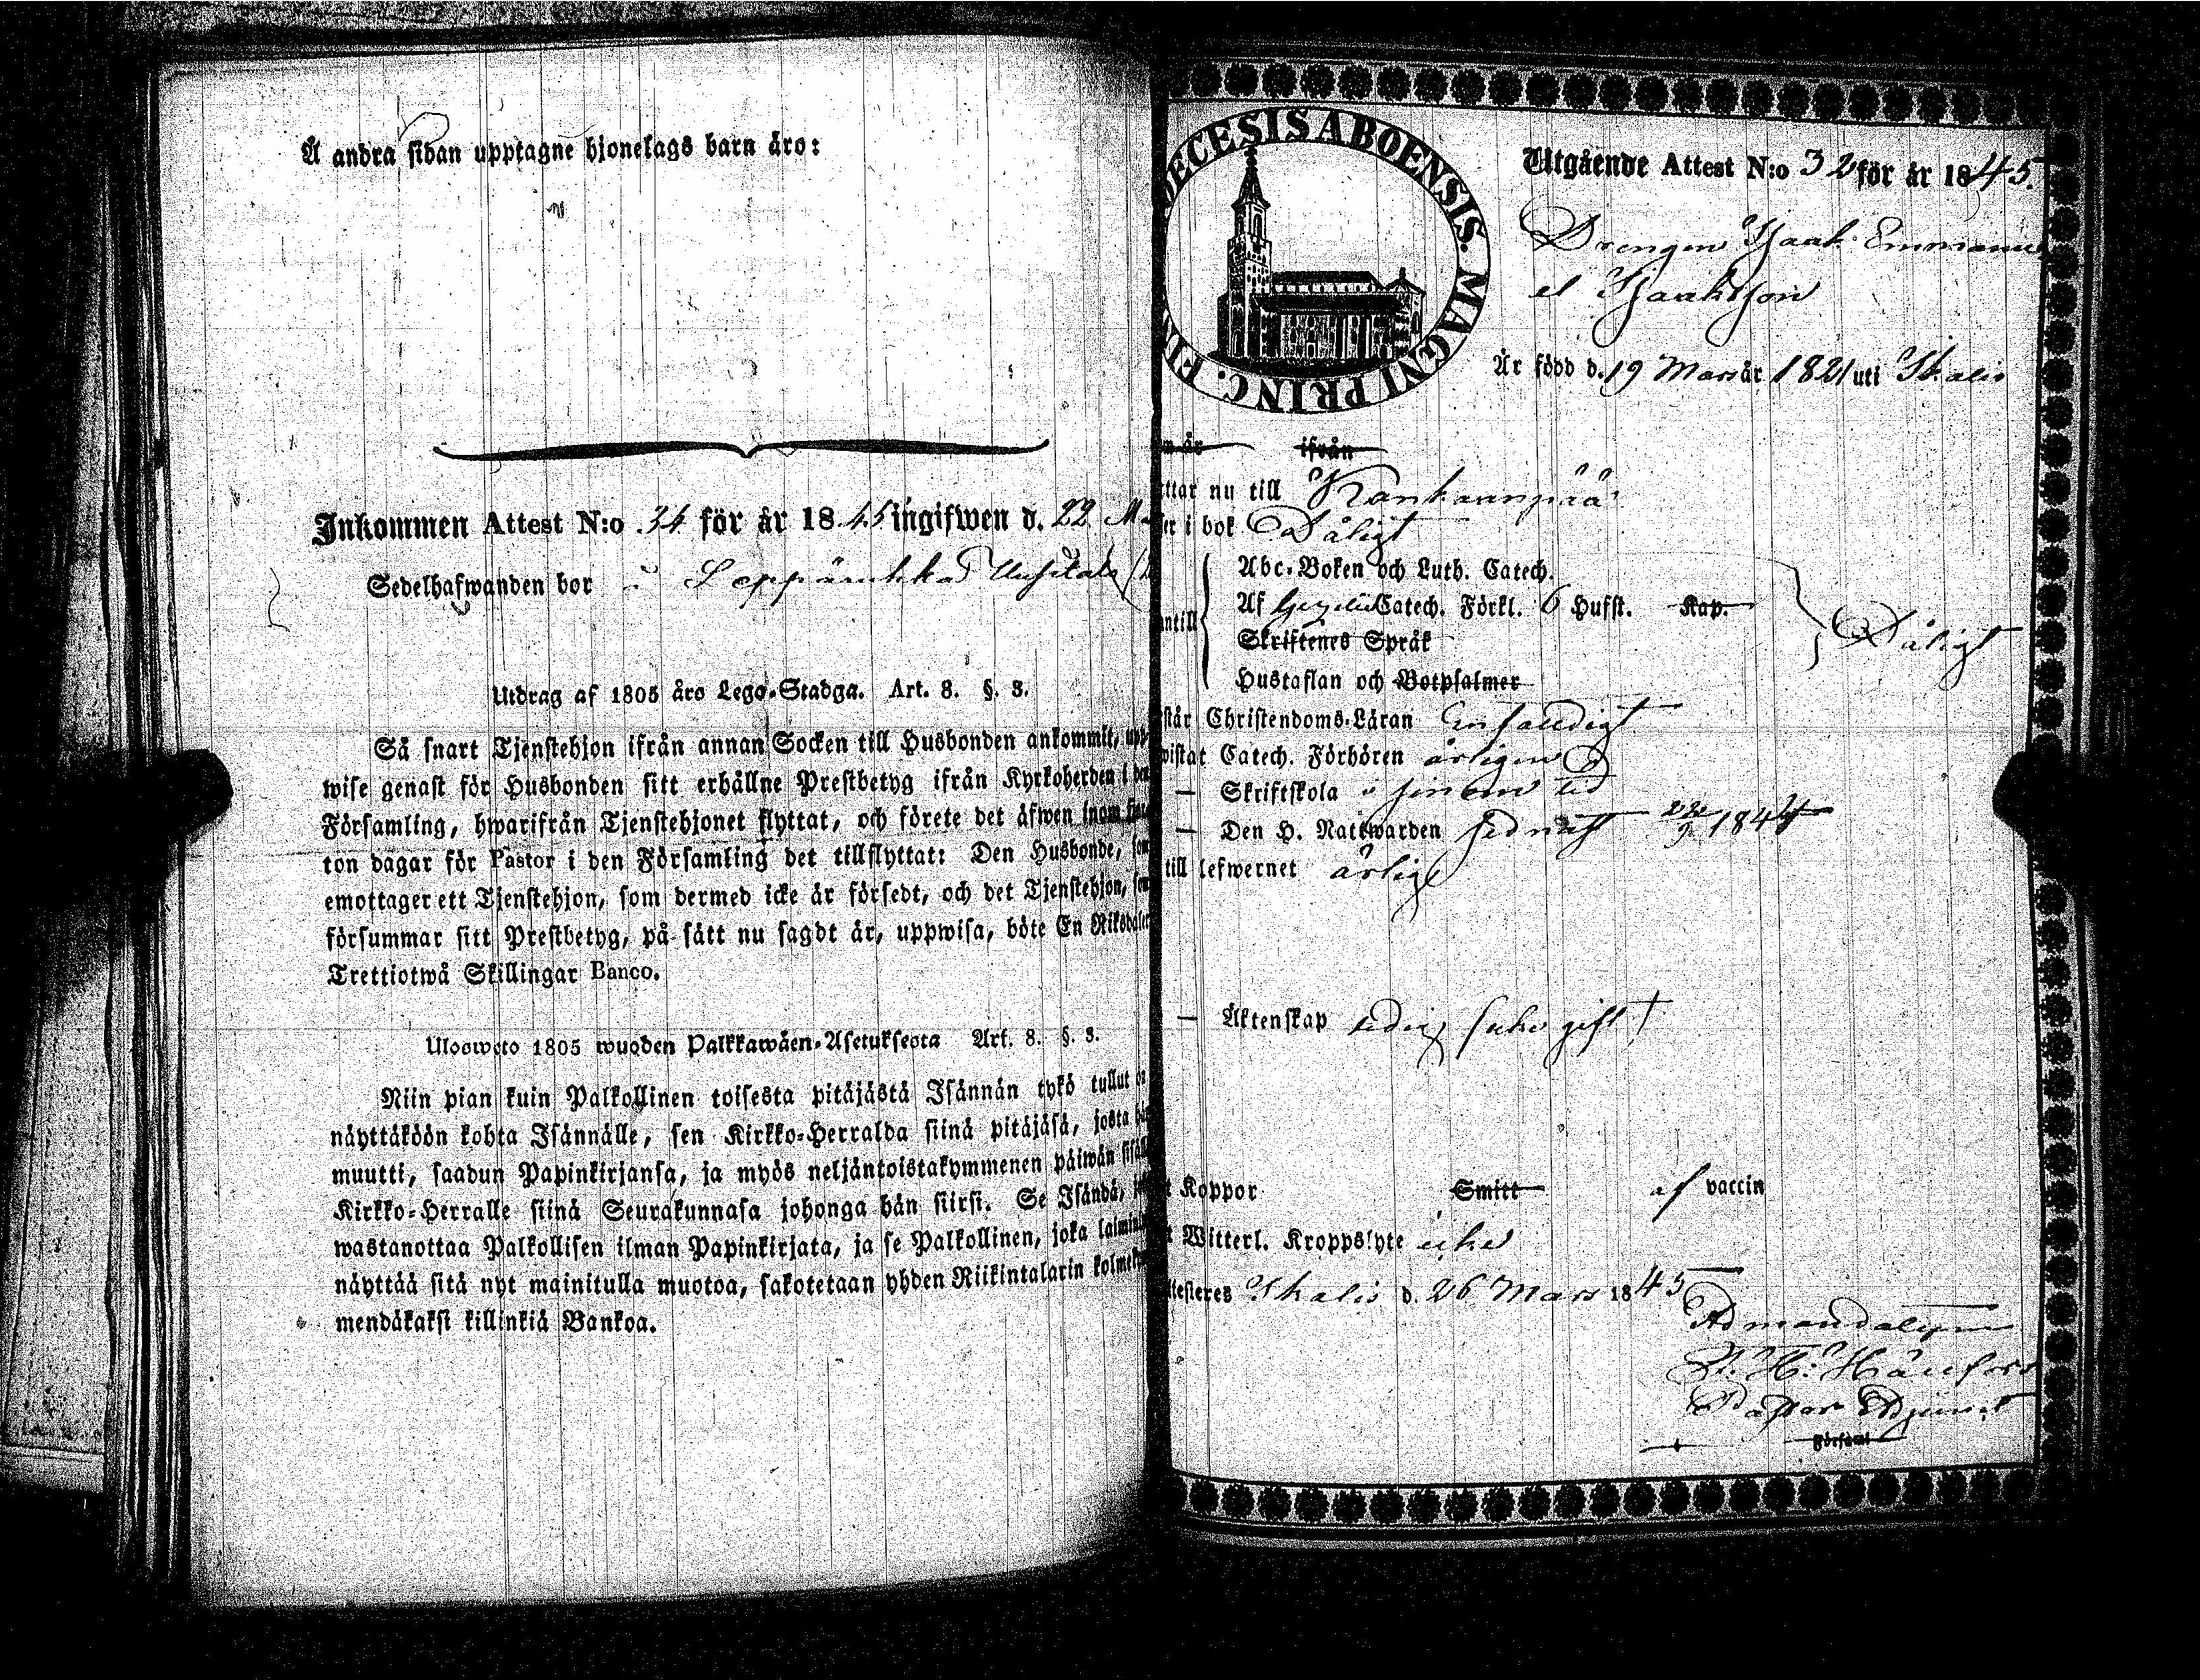 Å andra sidan upptagne hjonelags barn äro:
Inkommen Attest N:o 34 för år 1845 ingifwen d. 22
Sedelhafwanden bor i Leppäruhka
Utdrag af 1805 års Lego-Stadga. Art. 8. §. 3.
Så snart Tjenstehjon ifrån annan Socken till Husbonden ankommit, upp-
wise genast för Husbonden sitt erhållne Prestbetyg ifrån Kyrkoherden i den
Församling, hwarifrån Tjenstehjonet flyttat, och förete det äfwen inom
ton dagar för Pastor i den Församling det tillflyttat: Den Husbonde, som
emottager ett Tjenstehjon, som dermed icke är försedt, och det Tjenstehjon, som
försummar sitt Prestbetyg, på sätt nu sagdt är, uppwisa, böte En Riksdaler
Trettiotwå Skillingar Banco.
Uloswoto 1805 wuoden Palkkawäen-Asetuksesta Art. 8. §. 3.
Niin pian kuin Palkollinen toisesta pitäjästä Isännän tykö tullut on
näyttäköön kohta Isännälle, sen Kirkko-Herralda siinä pitäjäsä, josta hän
muutti, saadun Papinkirjansa, ja myös neljäntoistakymmenen päiwän sisällä
Kirkko-Herralle siinä Seurakunnasa johonga hän siirsi. Se Isändä, joka
wastanottaa Palkollisen ilman Papinkirjata, ja se Palkollinen, joka
näyttää sitä nyt mainitulla muotoa, sakotetaan yhden Riikintalarin
mendäkaksi killinkiä Bankoa.
DECESIS ABOENSIS. MAGNI PRINC. FI
Utgående Attest N:o 32 för år 1845.
Drengen Isaak Emmanu
el Isaaksson
Är född d. 19 Mars år 1821 uti Ikalis
år ifrån
ttar nu till Kankaanpää
i bok Dåligt
Abc-Boken och Luth. Catech.
Af Gezelii Catech. Förkl. 6 Hufst. Kap.
antill
Dåligt
Skriftenes Språk
Hustaflan och Botpsalmer
står Christendoms-Läran Enfaldigt
wistat Catech. Förhören årligen
— Skriftskola i sinom tid
— Den H. Nattwarden sednast 22/9 1844
till lefwernet ärlig
— Äktenskap ledig (icke gift)
Koppor Smitt af vaccin
Witterl. Kroppslyte icke
ttesteres Ikalis d. 26 Mars 1845
Ad mandatum
Pastors Adjunct
Församl